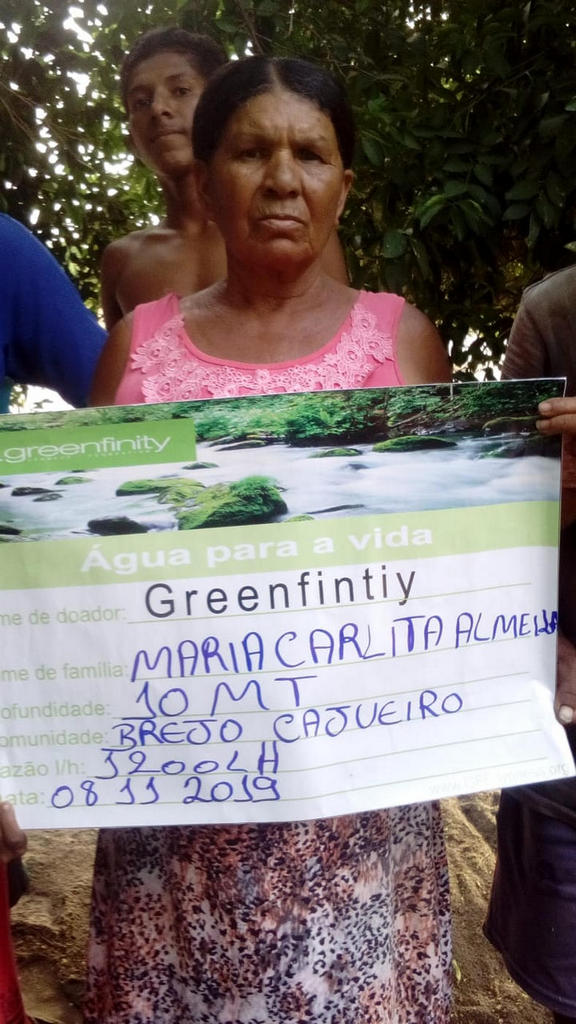 greenfinity
Água para a vida
me de doador: Greenfintiy
me de família: MARIA CARLITA ALMEIDA
ofundidade: 10 MT
omunidade: BREJO CAJUEIRO
azão l/h: 1200 LH
ata: 08 11 2019